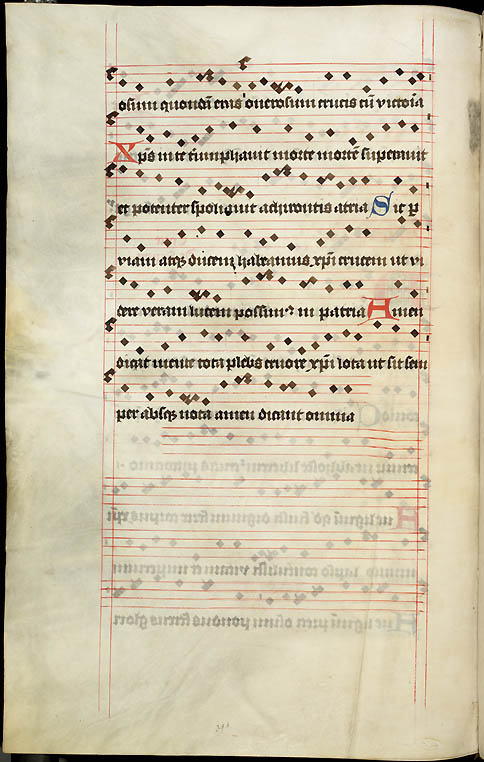 osum quoniam eius onerosum crucis cum victoria
Xps in te triumphauit morte morte superauit
et potenter spoliauit acherontis atria Sit p
viam atque ducem habeamus xpi crucem ut vi
dere veram lucem possimus in patria Amen
dicat mente tota plebs cruore xpi lota ut sit sem
per absque nota amen dicant omnia